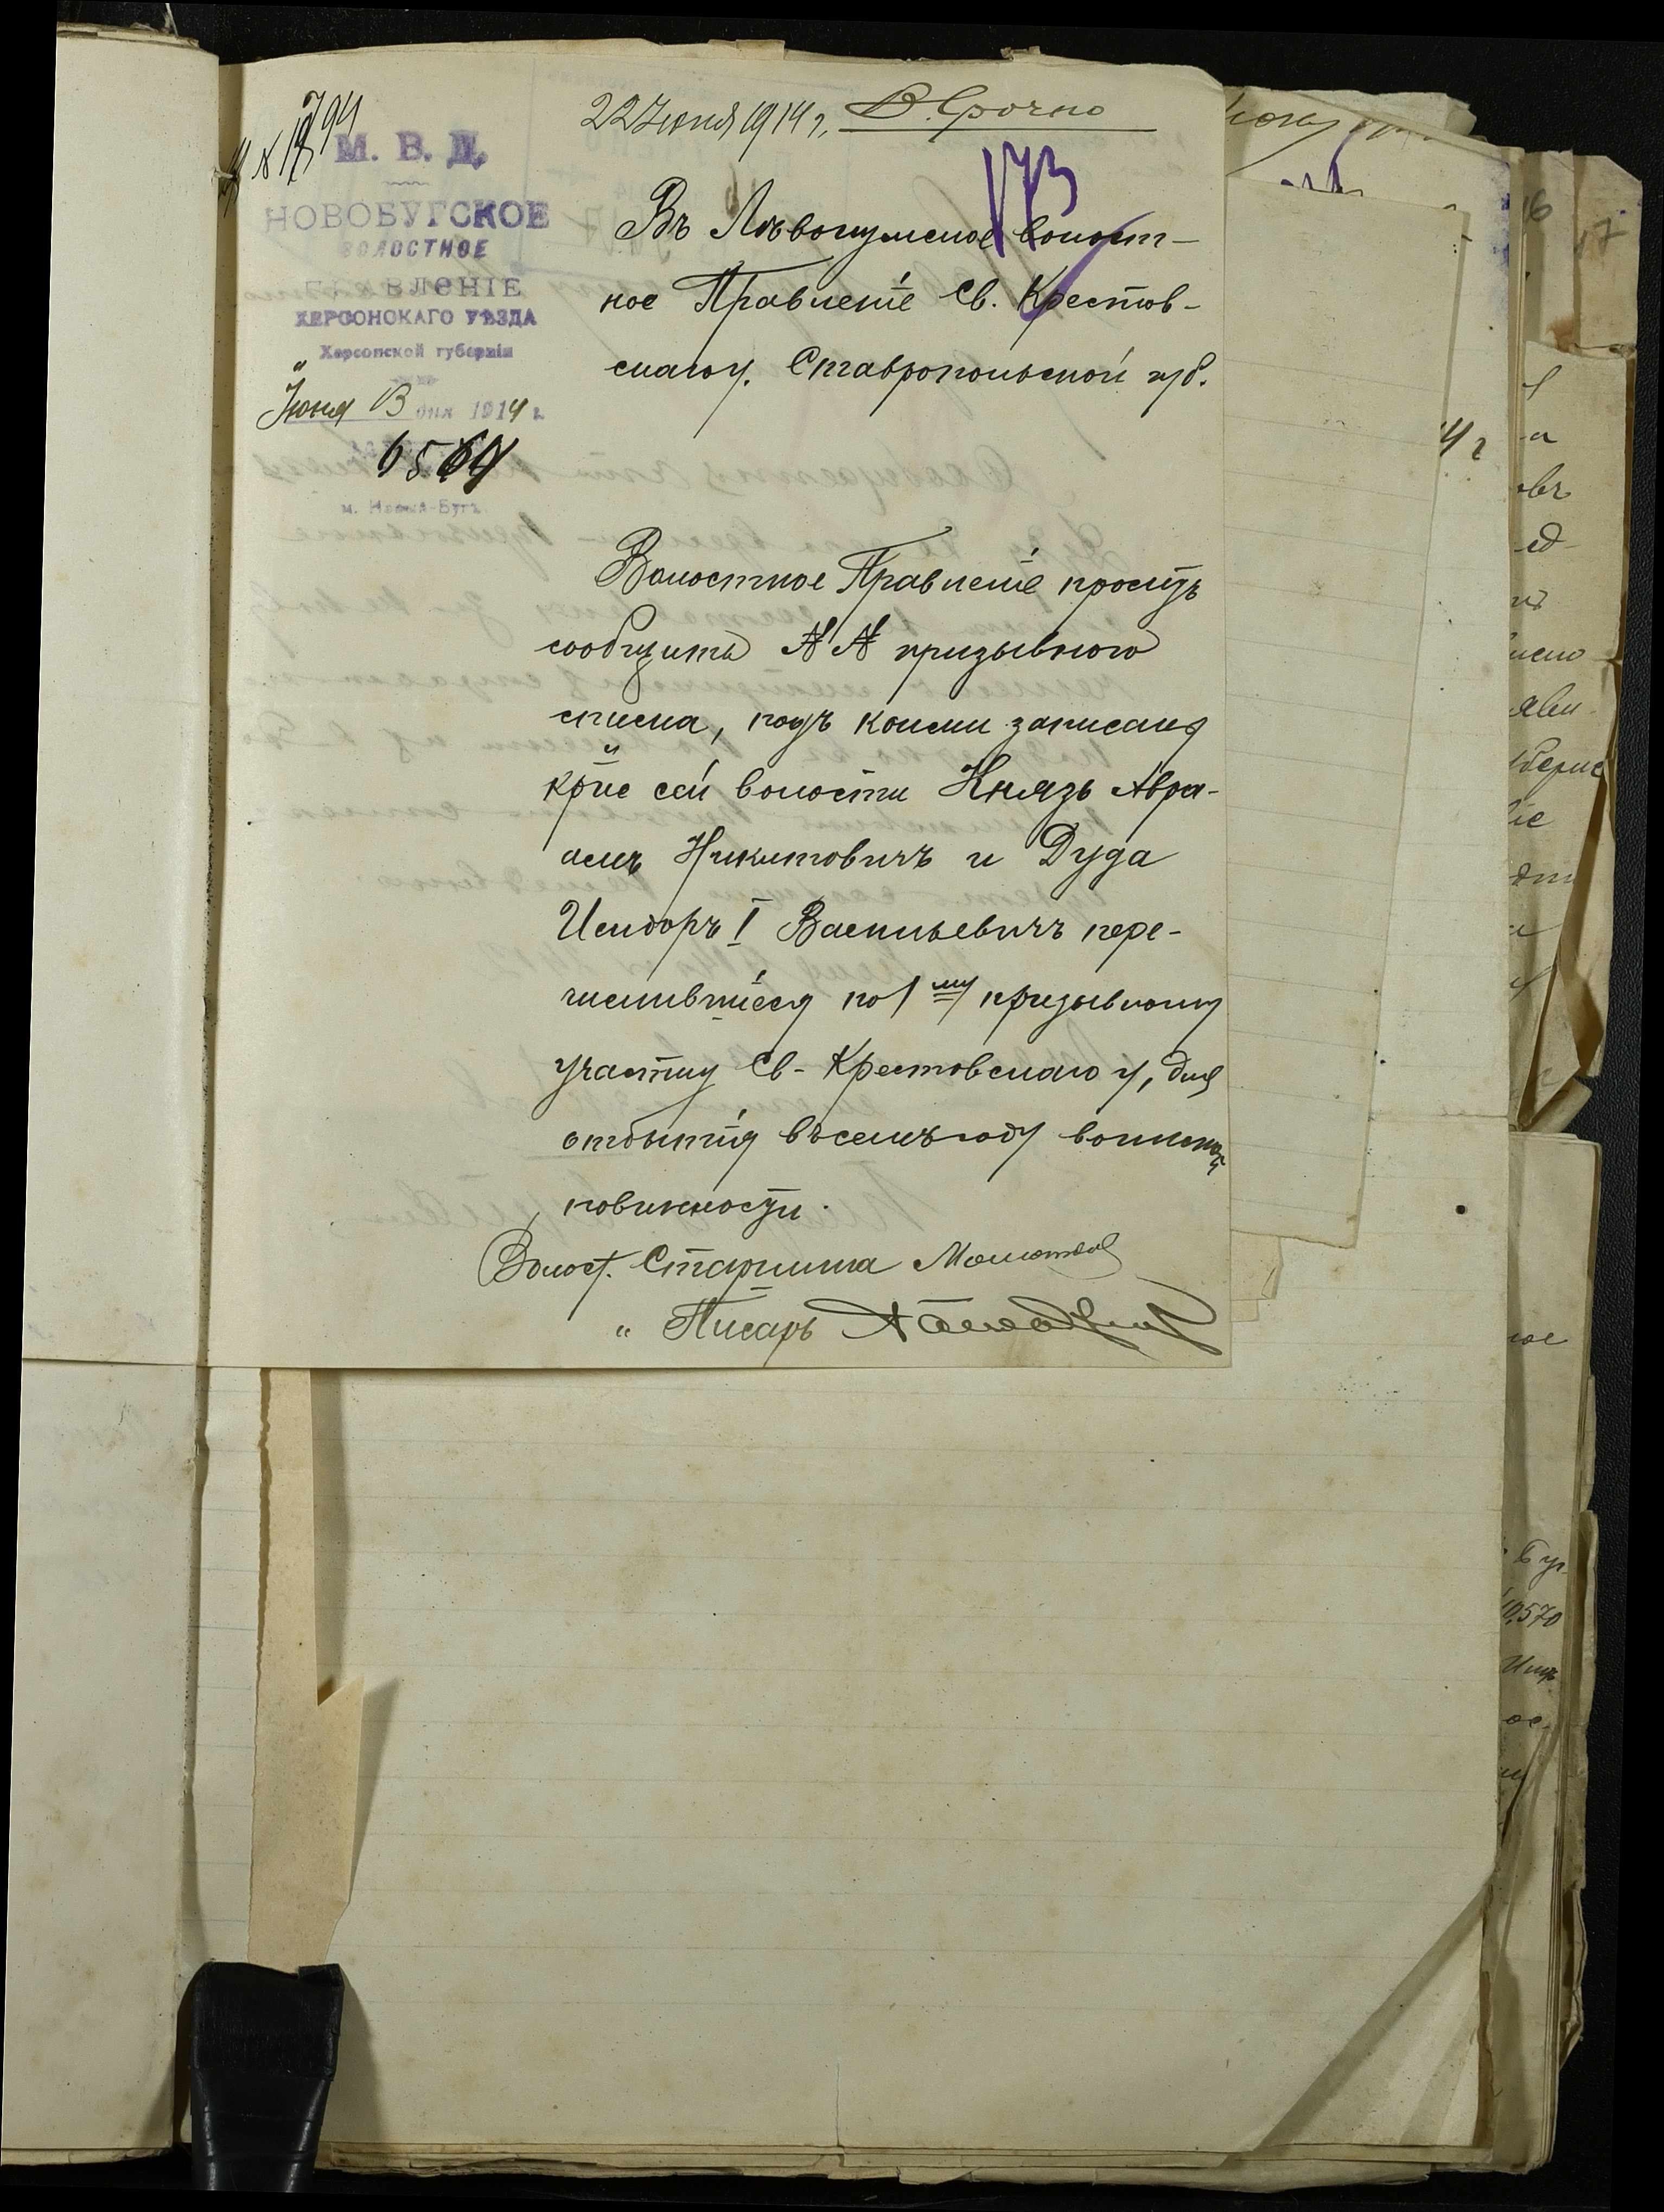 22 Іюня 1914 г. В. Срочно
173
М. В. Д.
НОВОБУГСКОЕ
ВОЛОСТНОЕ
ПРАВЛЕНІЕ
ХЕРСОНСКАГО УѢЗДА
Херсонской губерніи
Іюня 13 дня 1914 г.
6564
м. Новый-Бугъ
Въ Лѣвокумское волост-
ное Правленіе Св. Крестов-
скаго у. Ставропольской губ.
Волостное Правленіе проситъ
сообщить №№ призывного
списка, подъ коими записаны
кр̃не сей волости Князь Авра-
амъ Никитовичъ и Дуда
Исидоръ I Васильевичъ пере-
числившіеся по 1му призывному
участку Св-Крестовскаго у, для
отбытія въ семъ году воинской
повинности.
Волост. Старшина
" Писарь
16
17